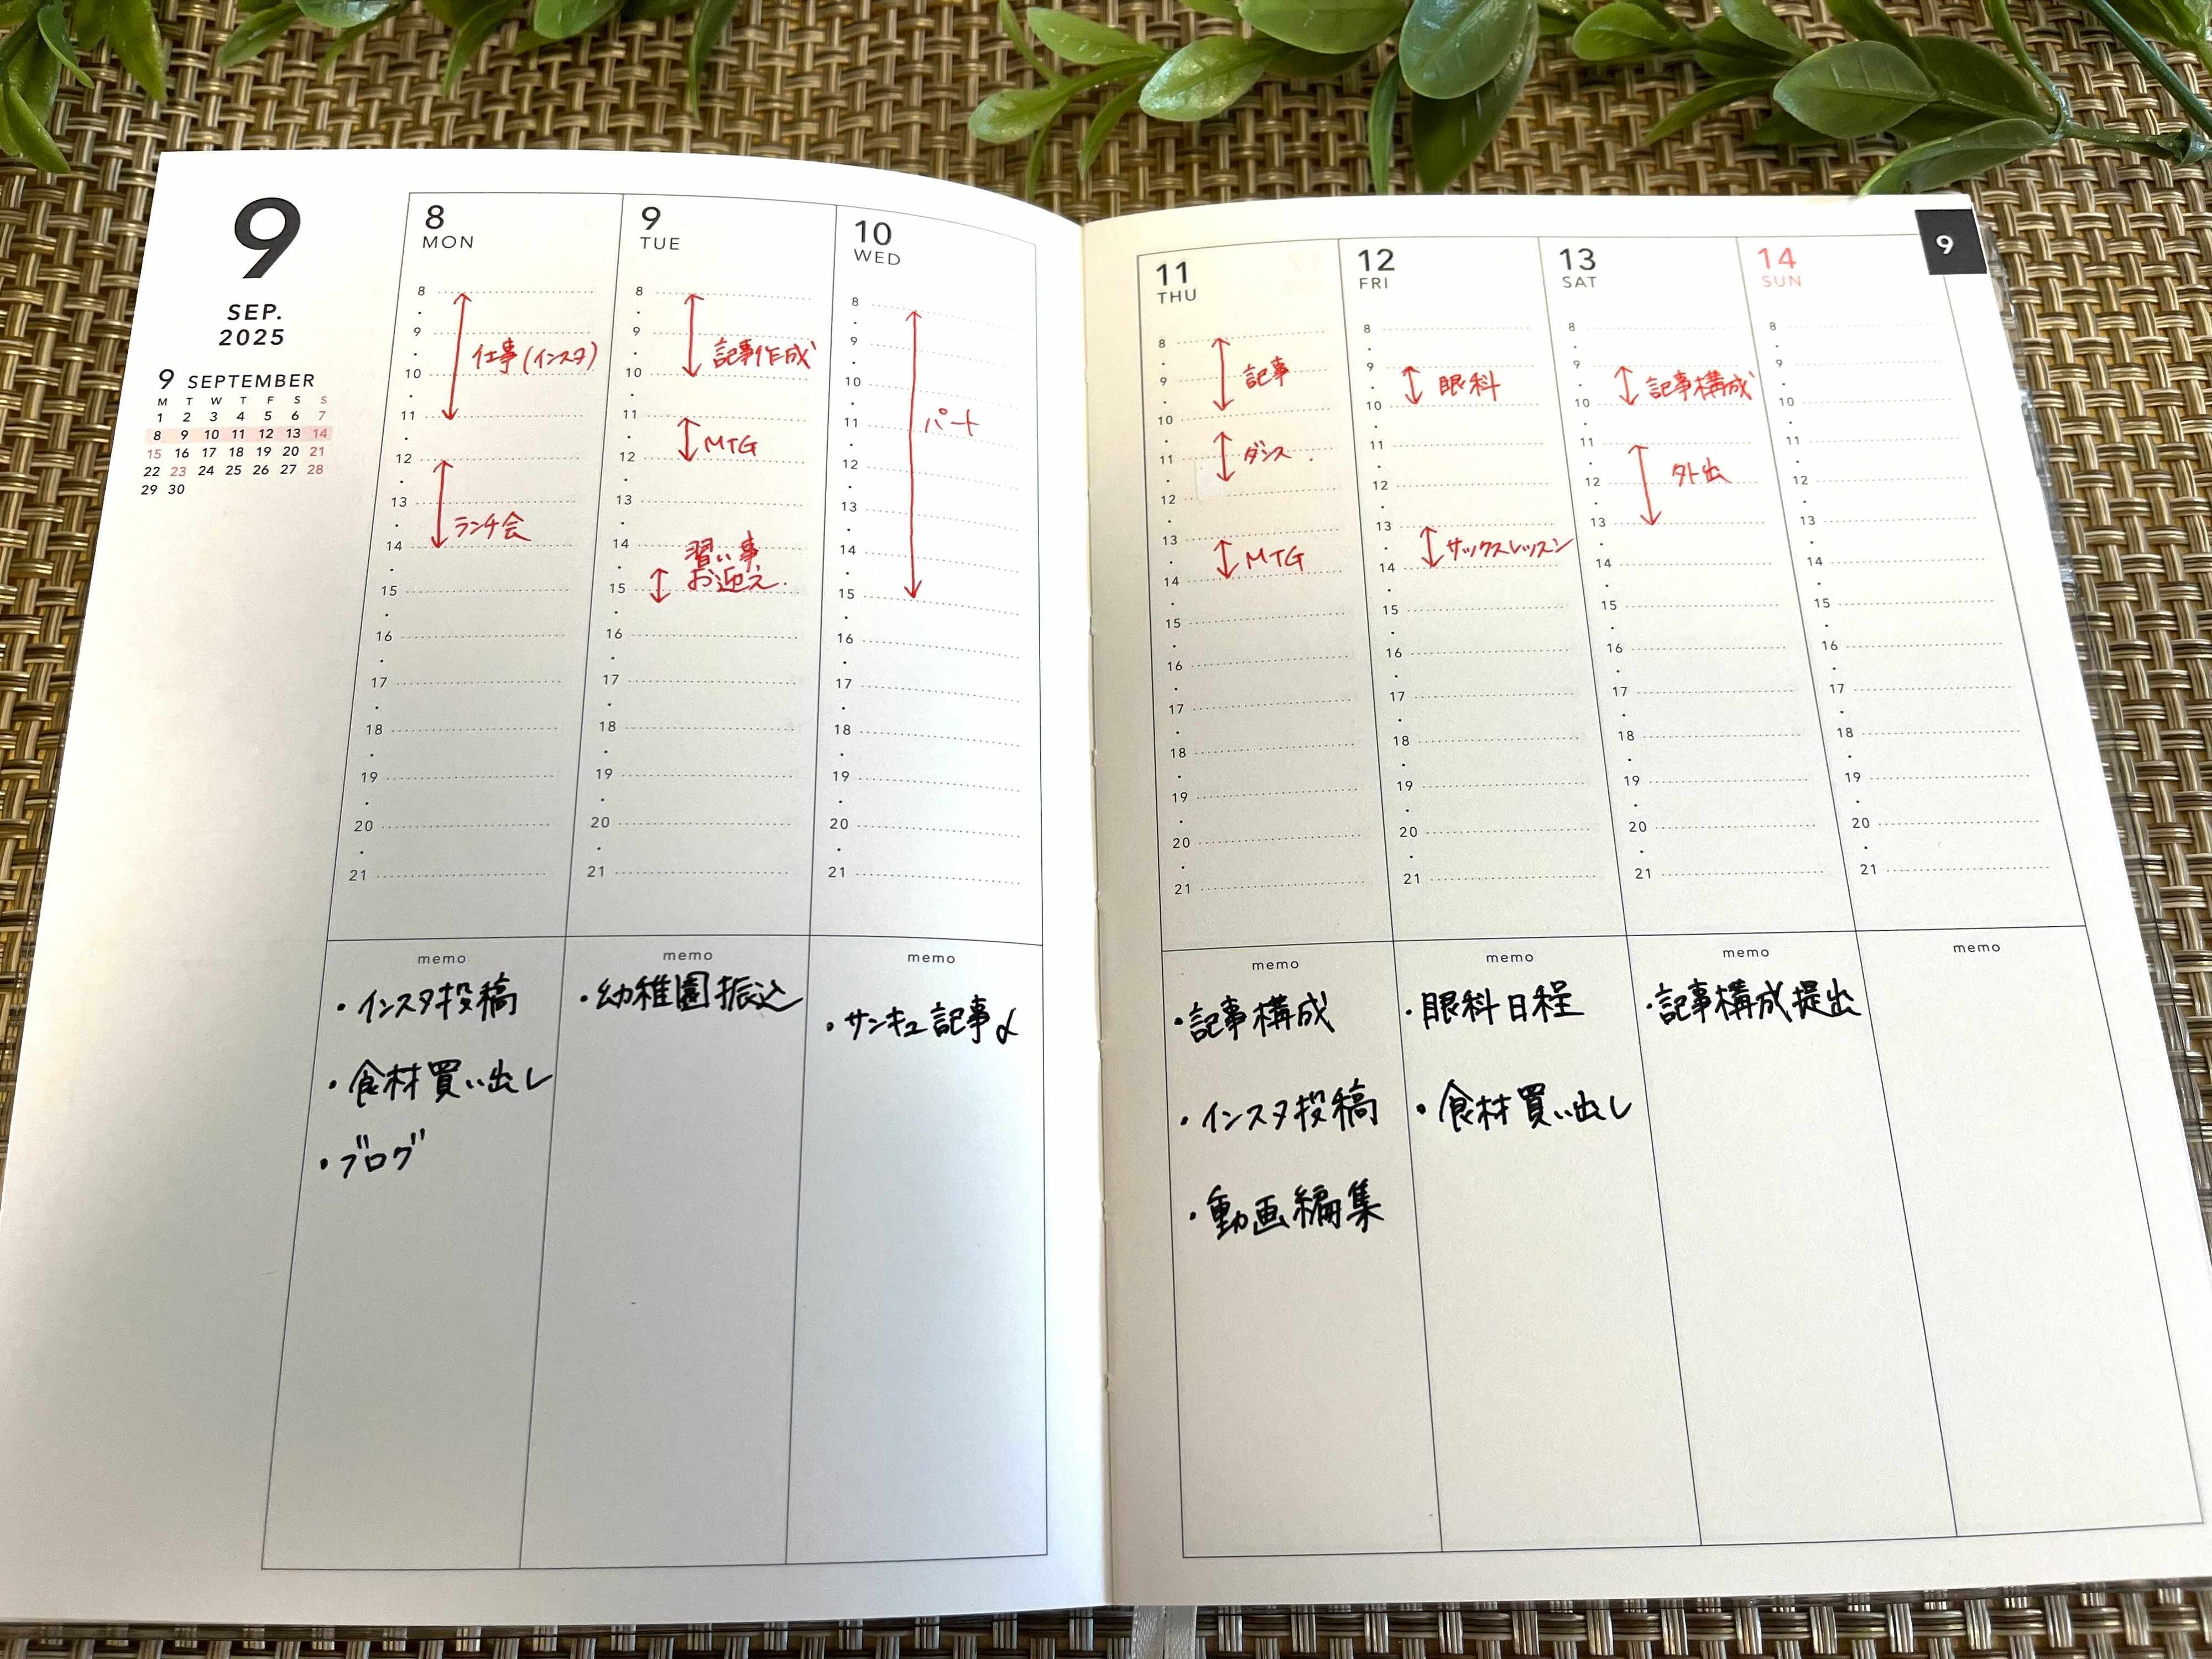 9
SEP.
2025
9 SEPTEMBER
M T W T F S S
1 2 3 4 5 6 7
8 9 10 11 12 13 14
15 16 17 18 19 20 21
22 23 24 25 26 27 28
29 30
8
MON
8
9
10
11
12
13
14
15
16
17
18
19
20
21
仕事(インスタ)
ランチ会
memo
・インスタ投稿
・食材買い出し
・ブログ
9
TUE
8
9
10
11
12
13
14
15
16
17
18
19
20
21
記事作成
MTG
習い事
お迎え
memo
・幼稚園振込
10
WED
8
9
10
11
12
13
14
15
16
17
18
19
20
21
パート
memo
・サンキュ記事〆
11
THU
8
9
10
11
12
13
14
15
16
17
18
19
20
21
記事
ダンス
MTG
memo
・記事構成
・インスタ投稿
・動画編集
12
FRI
8
9
10
11
12
13
14
15
16
17
18
19
20
21
眼科
サックスレッスン
memo
・眼科日程
・食材買い出し
13
SAT
8
9
10
11
12
13
14
15
16
17
18
19
20
21
記事構成
外出
memo
・記事構成提出
14
SUN
8
9
10
11
12
13
14
15
16
17
18
19
20
21
memo
9